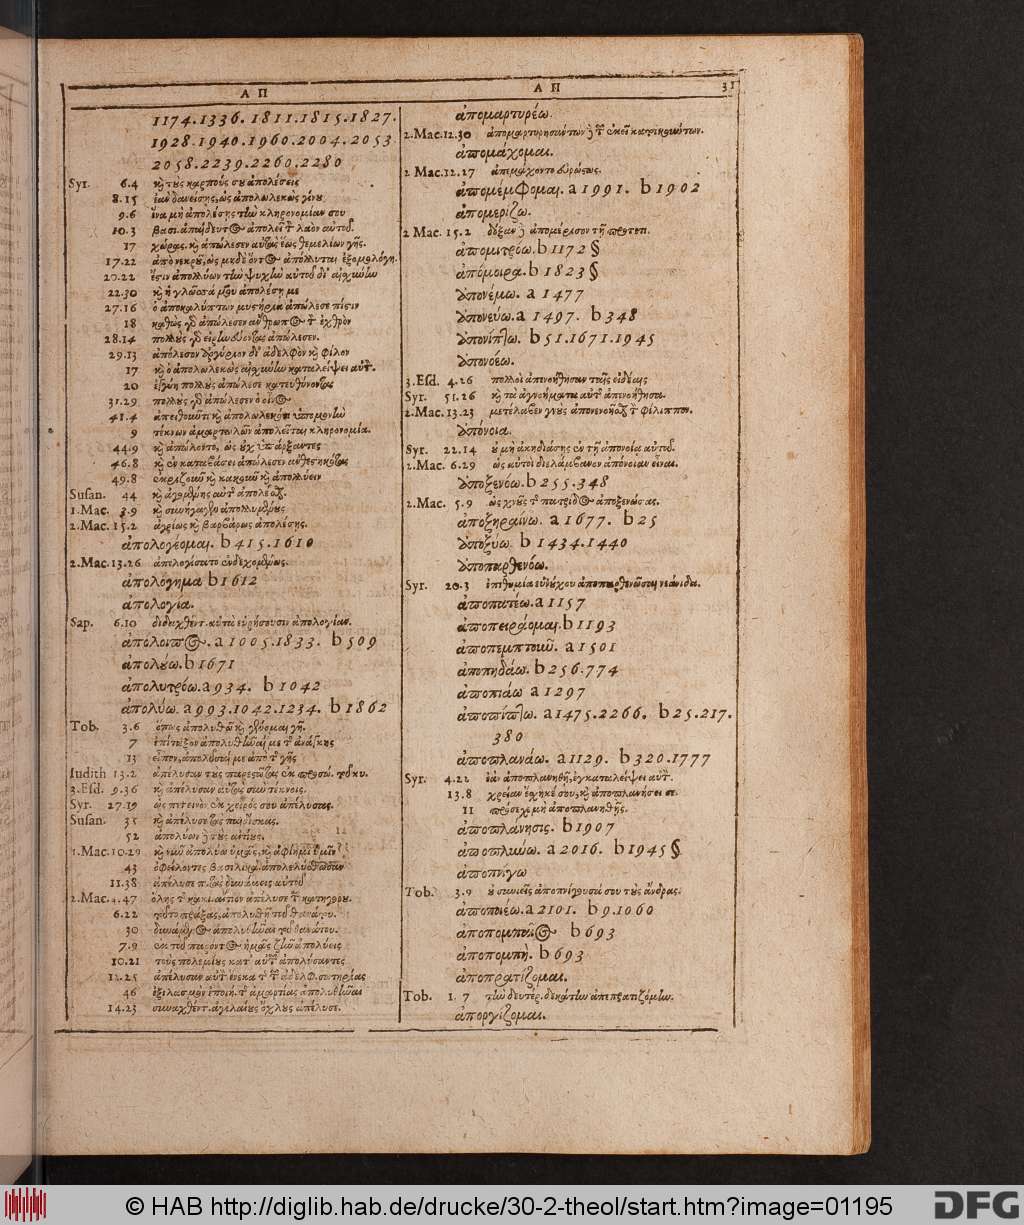 Α Π
Α Π 31
1174.1336.1811.1815.1827.
1928.1940.1960.2004.2053
2058.2239.2260.2280
Syr. 6.4 καὶ τοὺς καρπούς σου ἀπολέσεις
8.15 ἐὰν δανείσῃς, ὡς ἀπολωλεκὼς γίνου
9.6 ἵνα μὴ ἀπολέσῃς τὴν κληρονομίαν σου
10.3 βασι. ἀπαίδευτος ἀπολεῖ τὸν λαὸν αὐτοῦ.
17 χώρας. καὶ ἀπώλεσεν αὐτὰς ἕως θεμελίων γῆς.
17.22 ἀπὸ νεκροῦ, ὡς μηδὲ ὄντος ἀπόλλυται ἐξομολόγη.
20.22 ἔστιν ἀπολλύων τὴν ψυχὴν αὐτοῦ δι' αἰσχύνην
22.30 καὶ ἡ γλῶσσά μου ἀπολέσῃ με
27.16 ὁ ἀποκαλύπτων μυστήρια ἀπώλεσε πίστιν
18 καθὼς γὰρ ἀπώλεσεν ἄνθρωπος τὸν ἐχθρὸν
28.14 πολλοὺς γὰρ εἰρηνεύοντας ἀπώλεσεν.
29.13 ἀπόλεσον ἀργύριον δι' ἀδελφὸν καὶ φίλον
17 καὶ ὁ ἀπολωλεκὼς αἰσχύνην καταλείψει αὐτόν.
20 ἐγγύη πολλοὺς ἀπώλεσε κατευθύνοντας
31.29 πολλοὺς γὰρ ἀπώλεσεν ὁ οἶνος
41.4 ἀπειθοῦντι καὶ ἀπολωλεκότι ὑπομονὴν
9 τέκνων ἁμαρτωλῶν ἀπολεῖται κληρονομία.
44.9 καὶ ἀπώλοντο, ὡς οὐχ ὑπάρξαντες
46.8 καὶ ἐν καταβάσει ἀπώλεσεν ἀνθεστηκότας
49.8 ἐκριζοῦν καὶ κακοῦν καὶ ἀπολλύειν
Susan. 44 καὶ ἀγομένης αὐτῆς ἀπολέσθαι.
1.Mac. 3.9 καὶ συνήγαγεν ἀπολλυμένους
2.Mac. 15.2 ἀγρίως καὶ βαρβάρως ἀπολέσῃς.
ἀπολογέομαι. b 415.1610
2.Mac. 13.26 ἀπελογίσατο ἐνδεχομένως.
ἀπολόγημα b 1612
ἀπολογία.
Sap. 6.10 διδαχθέντ. αὐτὰ εὑρήσουσιν ἀπολογίαν.
ἀπόλοιπος. a 1005.1833. b 509
ἀπολούω. b 1671
ἀπολυτρόω. a 934. b 1042
ἀπολύω. a 993.1042.1234. b 1862
Tob. 3.6 ὅπως ἀπολυθῶ καὶ γένωμαι γῆ.
7 ἐπίταξον ἀπολυθῆναί με τῆς ἀνάγκης
13 εἶπον, ἀπολῦσαί με ἀπὸ τῆς γῆς
Iudith 13.2 ἀπέλυσαν τοὺς παρεστῶτας ἐκ προσώ. τοῦ κυ.
3.Esd. 9.36 καὶ ἀπέλυσαν αὐτὰς σὺν τέκνοις.
Syr. 27.19 ὡς πετεινὸν ἐκ χειρός σου ἀπέλυσας.
Susan. 35 καὶ ἀπέλυσε τὰς παιδίσκας.
52 ἀπολύων δὲ τοὺς αἰτίους.
1.Mac. 10.29 καὶ νῦν ἀπολύω ὑμᾶς, καὶ ἀφίημι ὑμῖν
43 ὀφείλοντες βασιλικὰ, ἀπολελύσθωσαν
11.38 ἀπέλυσε π. τὰς δυνάμεις αὐτοῦ
2.Mac. 4.47 ὅλης τῆς κακί. αἴτιον ἀπέλυσε τῶν κατηγορη.
6.22 τοῦτο πράξας, ἀπολυθῇ τοῦ θανάτου.
30 δυνάμενος ἀπολυθῆναι τοῦ θανάτου.
7.9 ἐκ τοῦ παρόντος ἡμᾶς ζῆν ἀπολύεις
10.21 τοὺς πολεμίους κατ' αὐτῶν ἀπολύσαντες
12.25 ἀπέλυσαν αὐτὸν ἕνεκα τῆς τῶν ἀδελφ. σωτηρίας
46 ἐξιλασμὸν ἐποιή. τῆς ἁμαρτίας ἀπολυθῆναι
14.23 συναχθέντ. ἀγελαίους ὄχλους ἀπέλυσε.
ἀπομαρτυρέω.
2.Mac. 12.30 ἀπομαρτυρησάντων δὲ τῶν ἐκεῖ κατοικούντων.
ἀπομάχομαι.
2 Mac. 12.27 ἀπεμάχοντο εὐρώστως.
ἀπομέμφομαι. a 1991. b 1902
ἀπομερίζω.
2 Mac. 15.2 δόξαν δὲ ἀπομέρισον τῇ προτετι.
ἀπομιτρόω. b 1172 §
ἀπόμοιρα. b 1823 §
ἀπονέμω. a 1477
ἀπονεύω. a 1497. b 348
ἀπονίπτω. b 51.1671.1945
ἀπονοέω.
3.Esd. 4.26 πολλοὶ ἀπενοήθησαν ταῖς ἰδίαις
Syr. 51.26 καὶ τὰ ἀγνοήματα αὐτῆς ἀπενοήθησα.
2.Mac. 13.23 μετέλαβεν γνοὺς ἀπονενοῆσθαι τὸν φίλιππον.
ἀπόνοια.
Syr. 22.14 οὐ μὴ ἀκηδιάσῃς ἐν τῇ ἀπονοίᾳ αὐτοῦ.
2.Mac. 6.29 ὡς αὐτοὶ διελάμβανον ἀπόνοιαν εἶναι.
ἀποξενόω. b 255.348
2.Mac. 5.9 ὡς συχνοὺς τῆς πατρίδος ἀποξενώσας.
ἀποξηραίνω. a 1677. b 25
ἀποξύω. b 1434.1440
ἀποπαρθενόω.
Syr. 20.3 ἐπιθυμία εὐνούχου ἀποπαρθενῶσαι νεάνιδα.
ἀποπατέω. a 1157
ἀποπειράομαι. b 1193
ἀποπεμπτοῦν. a 1501
ἀποπηδάω. b 256.774
ἀποπιάω a 1297
ἀποπίπτω. a 1475.2266. b 25.217.
380
ἀποπλανάω. a 1129. b 320.1777
Syr. 4.22 ἐὰν ἀποπλανηθῇ, ἐγκαταλείψει αὐτόν.
13.8 χρείαν ἔσχηκέ σου, καὶ ἀποπλανήσει σε.
11 πρόσεχε μὴ ἀποπλανηθῇς.
ἀποπλάνησις. b 1907
ἀποπλύνω. a 2016. b 1945 §
ἀποπνίγω
Tob. 3.9 οὐ συνιεῖς ἀποπνίγουσά σου τοὺς ἄνδρας.
ἀποποιέω. a 2101. b 9.1060
ἀποπομπαῖος b 693
ἀποπομπὴ. b 693
ἀποπρατίζομαι.
Tob. 1.7 τὴν δευτέρ. δεκάτην ἀπεπρατιζόμην.
ἀποργίζομαι.
© HAB http://diglib.hab.de/drucke/30-2-theol/start.htm?image=01195
DFG